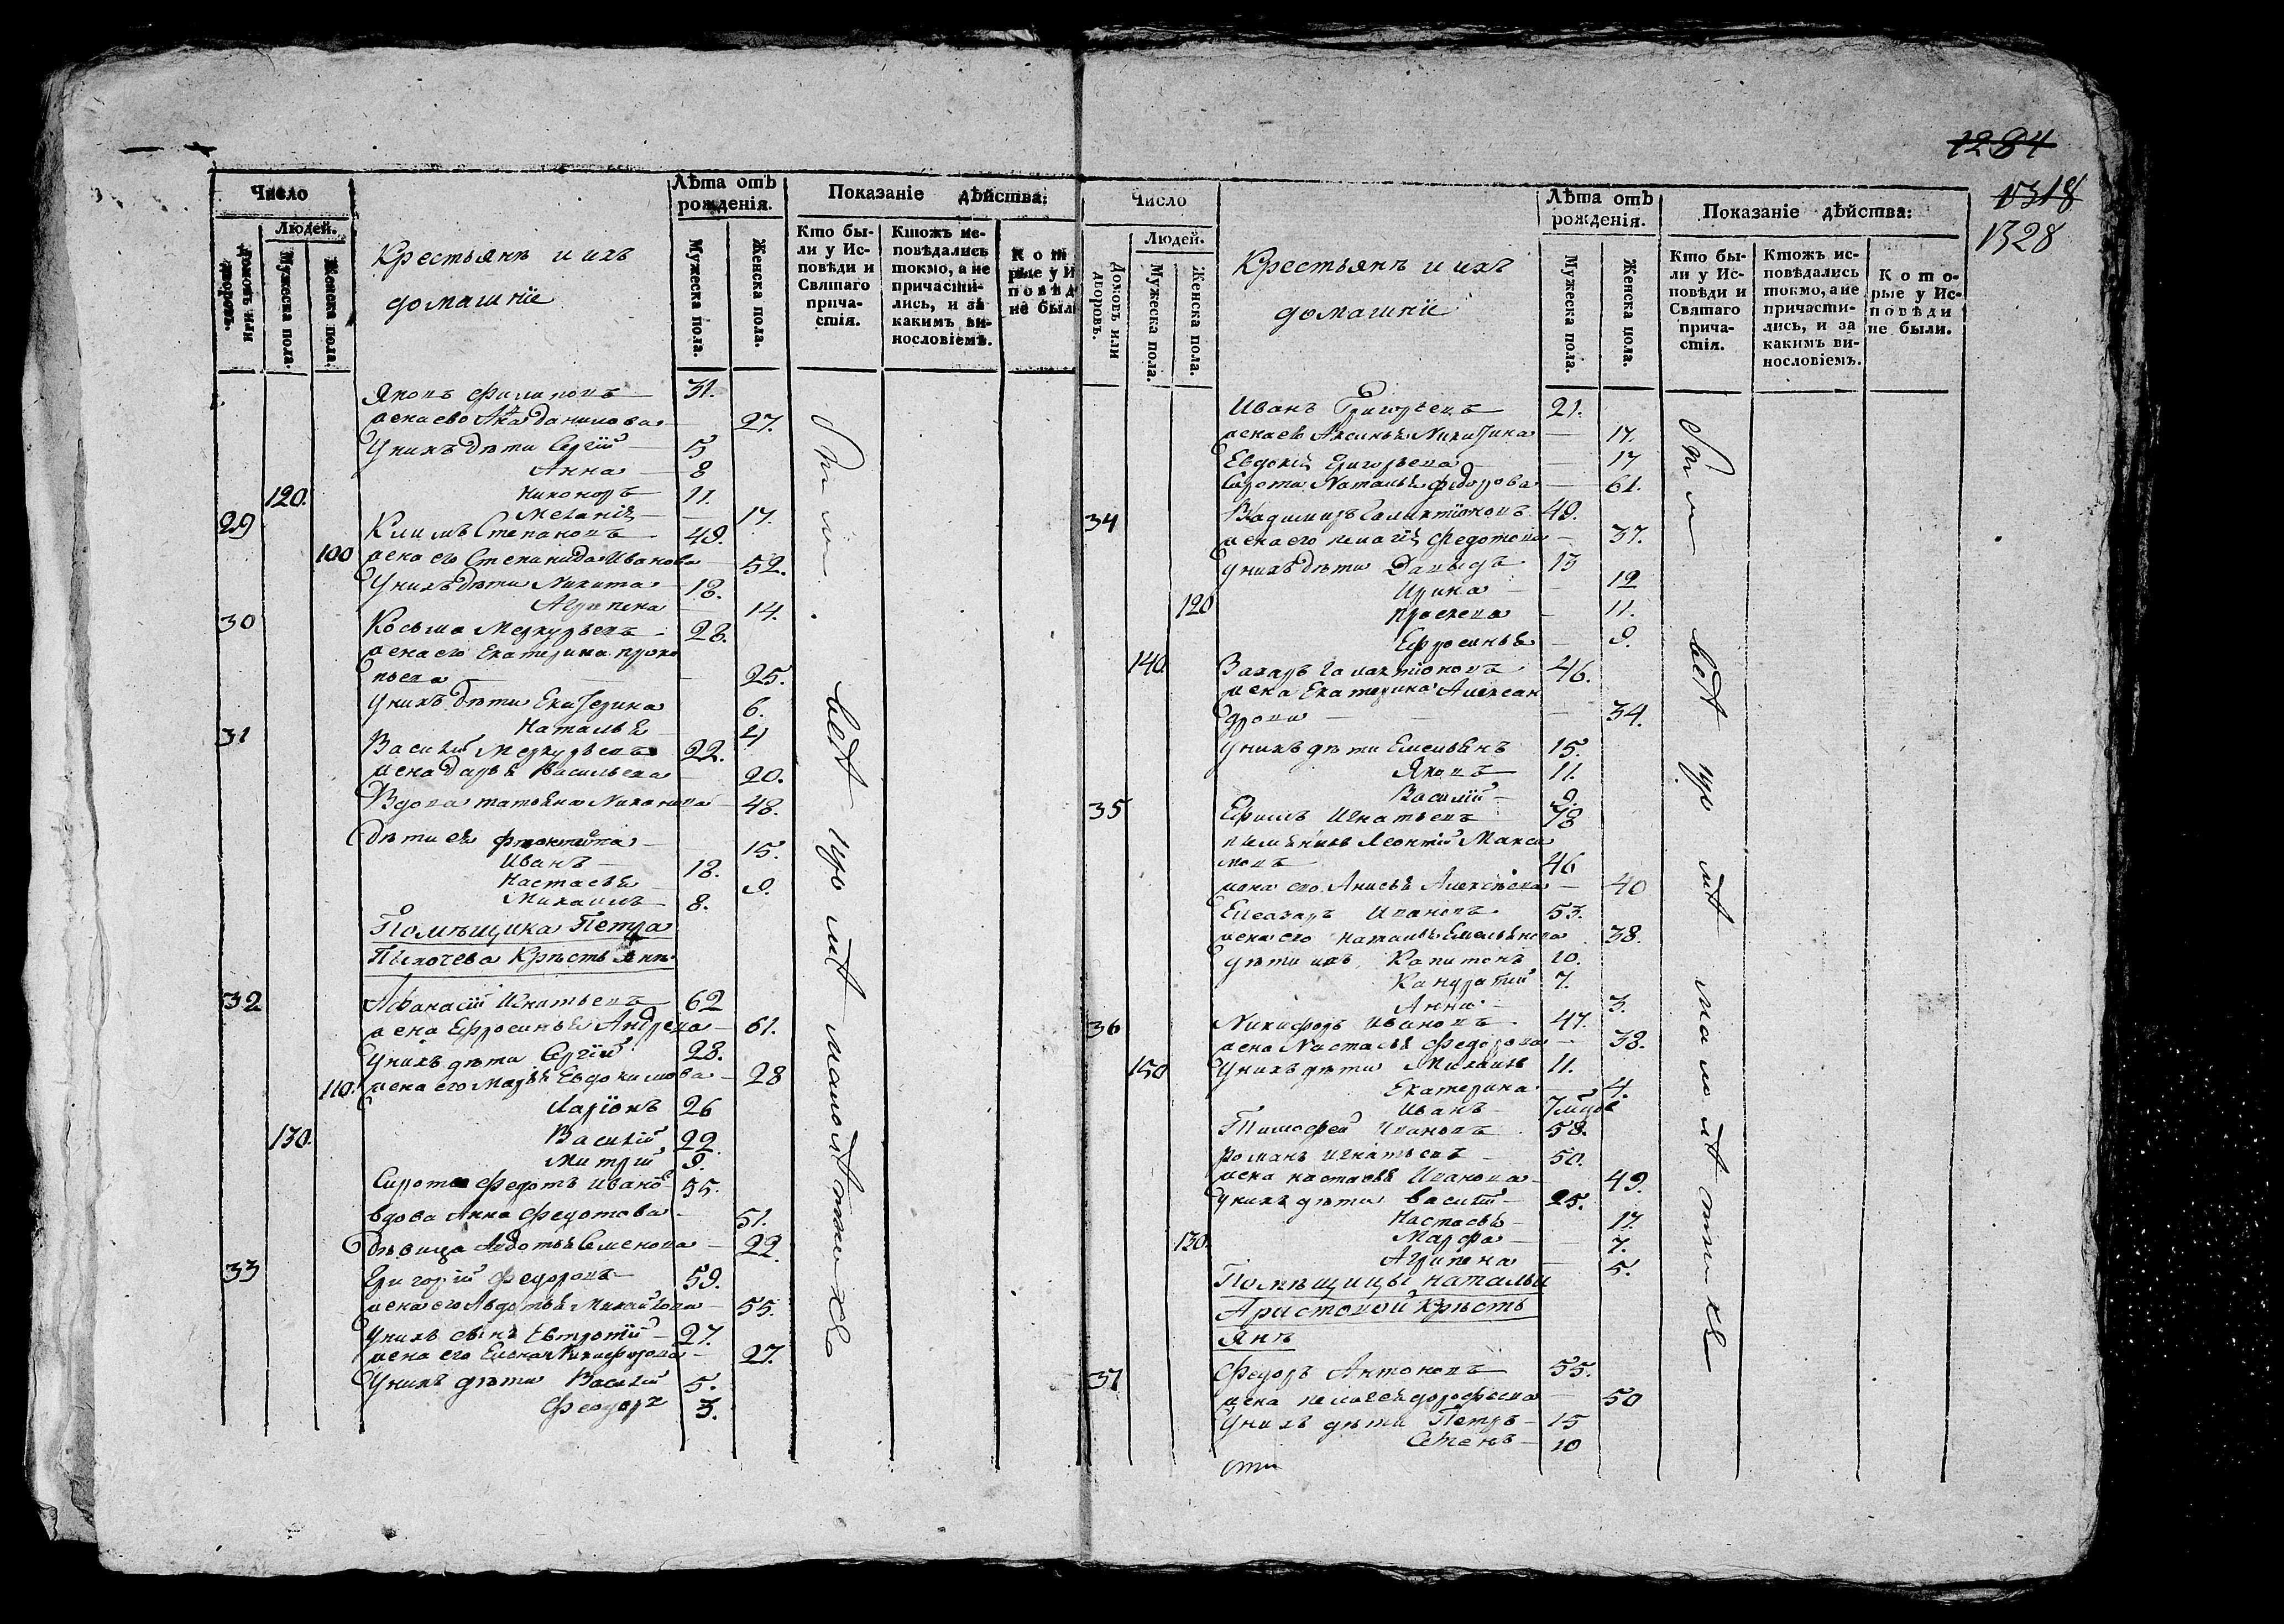 1284
1318
1328
Число
Людей.
домовъ или дворовъ.
Мужеска пола.
Женска пола.
Крестьянъ и ихъ
домашніе
Лѣта отъ рожденія.
Мужеска пола.
Женска пола.
Показаніе дѣйства:
Кто были у Исповѣди и Святаго причастія.
Ктожъ исповѣдались токмо, а не причастились, и за какимъ винословіемъ.
Кото
рые у И
повѣд
не был
Яковъ Филиповъ 31.
жена ево Анна Данилова 27.
У нихъ дѣти Сергій 5
Анна 8
120. Никоноръ 11.
Меланія 17.
29 Климъ Степановъ 49.
100 жена его Степанида Иванова 52.
У нихъ дѣти Никита 18.
Агрипена 14.
30 Косьма Меркурьевъ 28.
жена его Екатерина Проко
пьева 25.
У нихъ дѣти Екатерина 6.
Наталья 4
31 Василій Меркурьевъ 22.
жена Дарья Васильева 20.
Вдова Татьяна 48.
Дѣти ея 15.
Иванъ 18.
Настасья 9.
Михаилъ 8.
Помѣщика Петра
Крѣстьянъ
32 Афанасій Игнатьевъ 62
жена Ефросинья Андрева 61.
У нихъ дѣти Сергій 28.
110. жена его Марья Евдокимова 28
Ларіонъ 26
130. Василій 22.
Митрій 9.
Сирота Федотъ Ивано 35.
вдова Анна Федотова 51.
Дѣвица Авдотья Семенова 22.
33 Григорій Федоровъ 59.
жена его Авдотья Михайлова 55.
У нихъ сынъ Евтропій 27.
жена его Елена Никифорова 27.
У нихъ дѣти Василій 5.
Феодоръ 3.
Число
Людей.
Домовъ или дворовъ.
Мужеска пола.
Женска пола.
Крестьянъ и ихъ
домашніе
Лѣта отъ рожденія.
Мужеска пола.
Женска пола.
Показаніе дѣйства:
Кто были у Исповѣди и Святаго причастія.
Ктожъ исповѣдались токмо, а не причастились, и за какимъ винословіемъ.
Которые у Исповѣди не были.
Иванъ Григорьевъ 21.
жена ево Аксинья Никитина 17.
Евдокія Григорьева 17
Сирота Наталья Федорова 61.
34 49.
жена его Пелагія Федотова 37.
У нихъ дѣти Давыдъ 13
Ирина 12
120 Прасковa 11.
Ефросинья 9.
140. Захаръ Галактіоновъ 46.
жена Екатерина Алексан
дрова 34.
У нихъ дѣти Емельянъ 15.
Яковъ 11.
Василій 9.
35 Ефимъ Игнатьевъ 78
племяникъ Леонтій Макси
мовъ 46
жена его Анисья Алексѣева 40
Елеазаръ Ивановъ 53.
жена его Наталья Емельянова 38.
дѣти ихъ Капитонъ 10.
Кандратій 7.
Анна 3.
36 Никифоръ Ивановъ 47.
жена Настасья Федорова 38.
150 У нихъ дѣти Михаилъ 11.
Екатерина 4.
Иванъ 7
Тимофей Ивановъ 58.
Романъ Игнатьевъ 50.
жена Настасья Иванова 49.
У нихъ дѣти Василій 25.
Настасья 17.
130. Марфа 7.
Агрипена 5.
Помѣщицы Натальи
Аристовой Крѣсть
янъ
37 Федоръ Антоновъ 55.
жена Пелагея Дорофеева 50
У нихъ дѣти Петръ 15
10